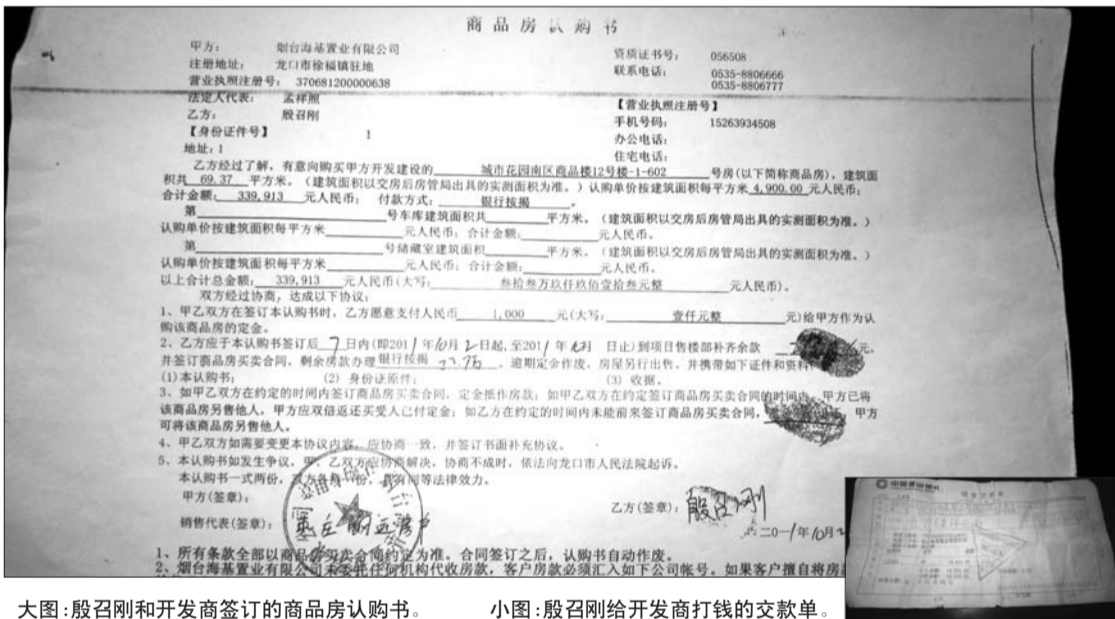 商品房认购书
甲方： 烟台海基置业有限公司 资质证书号： 056508
注册地址： 龙口市徐福镇驻地 联系电话： 0535-8806666
营业执照注册号： 370681200000638 0535-8806777
法定人代表： 孟祥照 【营业执照注册号】
乙方： 殷召刚 手机号码： 15263934508
【身份证件号】 1 办公电话：
地址：1 住宅电话：
乙方经过了解，有意向购买甲方开发建设的 城市花园南区商品楼12号楼-1-602 号房(以下简称商品房)，建筑面
积共 69.37 平方米。（建筑面积以交房后房管局出具的实测面积为准。）认购单价按建筑面积每平方米 4,900.00 元人民币；
合计金额： 339,913 元人民币； 付款方式： 银行按揭 。
第 号车库建筑面积共 平方米。（建筑面积以交房后房管局出具的实测面积为准。）
认购单价按建筑面积每平方米 元人民币；合计金额： 元人民币。
第 号储藏室建筑面积 平方米。（建筑面积以交房后房管局出具的实测面积为准。）
认购单价按建筑面积每平方米 元人民币；合计金额： 元人民币。
以上合计总金额： 339,913 元人民币(大写： 叁拾叁万玖仟玖佰壹拾叁元整 元人民币)。
双方经过协商，达成以下协议：
1、甲乙双方在签订本认购书时，乙方愿意支付人民币 1,000 元(大写： 壹仟元整 元)给甲方作为认
购该商品房的定金。
2、乙方应于本认购书签订后 7 日内(即2011年10月2日起，至2011年 月 日止)到项目售楼部补齐余款 元，
并签订商品房买卖合同，剩余房款办理 银行按揭 ，逾期定金作废，房屋另行出售。并携带如下证件和资料
(1)本认购书； (2) 身份证原件； (3) 收据。
3、如甲乙双方在约定的时间内签订商品房买卖合同，定金抵作房款；如甲乙双方在约定签订商品房买卖合同的时间内，甲方已将
该商品房另售他人，甲方应双倍返还买受人已付定金；如乙方在约定的时间内未能前来签订商品房买卖合同， 甲方
可将该商品房另售他人。
4、甲乙双方如需要变更本协议内容，应协商一致，并签订书面补充协议。
5、本认购书如发生争议，甲、乙双方应协商解决，协商不成时，依法向龙口市人民法院起诉。
本认购书一式两份，双方各执一份，具有同等法律效力。
甲方(签章)： 乙方(签章)： 殷召刚
销售代表(签章)： 二0一1年10月2
1、所有条款全部以商品房买卖合同约定为准。合同签订之后，认购书自动作废。
2、烟台海基置业有限公司未委托任何机构代收房款，客户房款必须汇入如下公司帐号。如果客户擅自将房款
中国建设银行
大图：殷召刚和开发商签订的商品房认购书。 小图：殷召刚给开发商打钱的交款单。